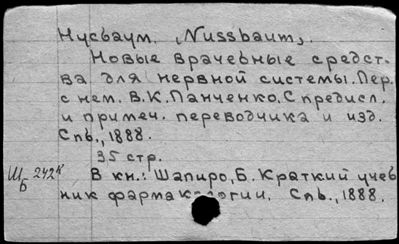 Нусбаум. (Nussbaum).
Новые врачебные средст-
ва для нервной системы. Пер.
с нем. В.К. Панченко. С предисл.
и примеч. переводчика и изд.
Спб., 1888.
35 стр.
Шб 242к В кн.: Шапиро, Б. Краткий учеб
ник фармакологии. Спб., 1888.